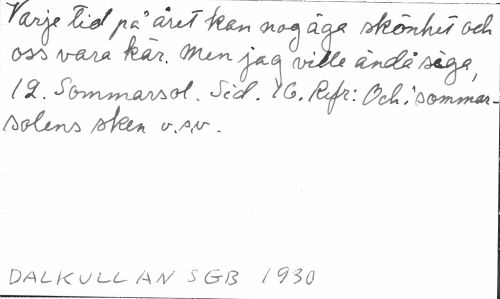 Varje tid på året kan nog äga skönhet och
oss vara kär. Men jag ville ändå säga,
12. Sommarsol. Sid. 16. Refr: Och i sommar-
solens sken o.s.v.
DALKULLAN SGB 1930